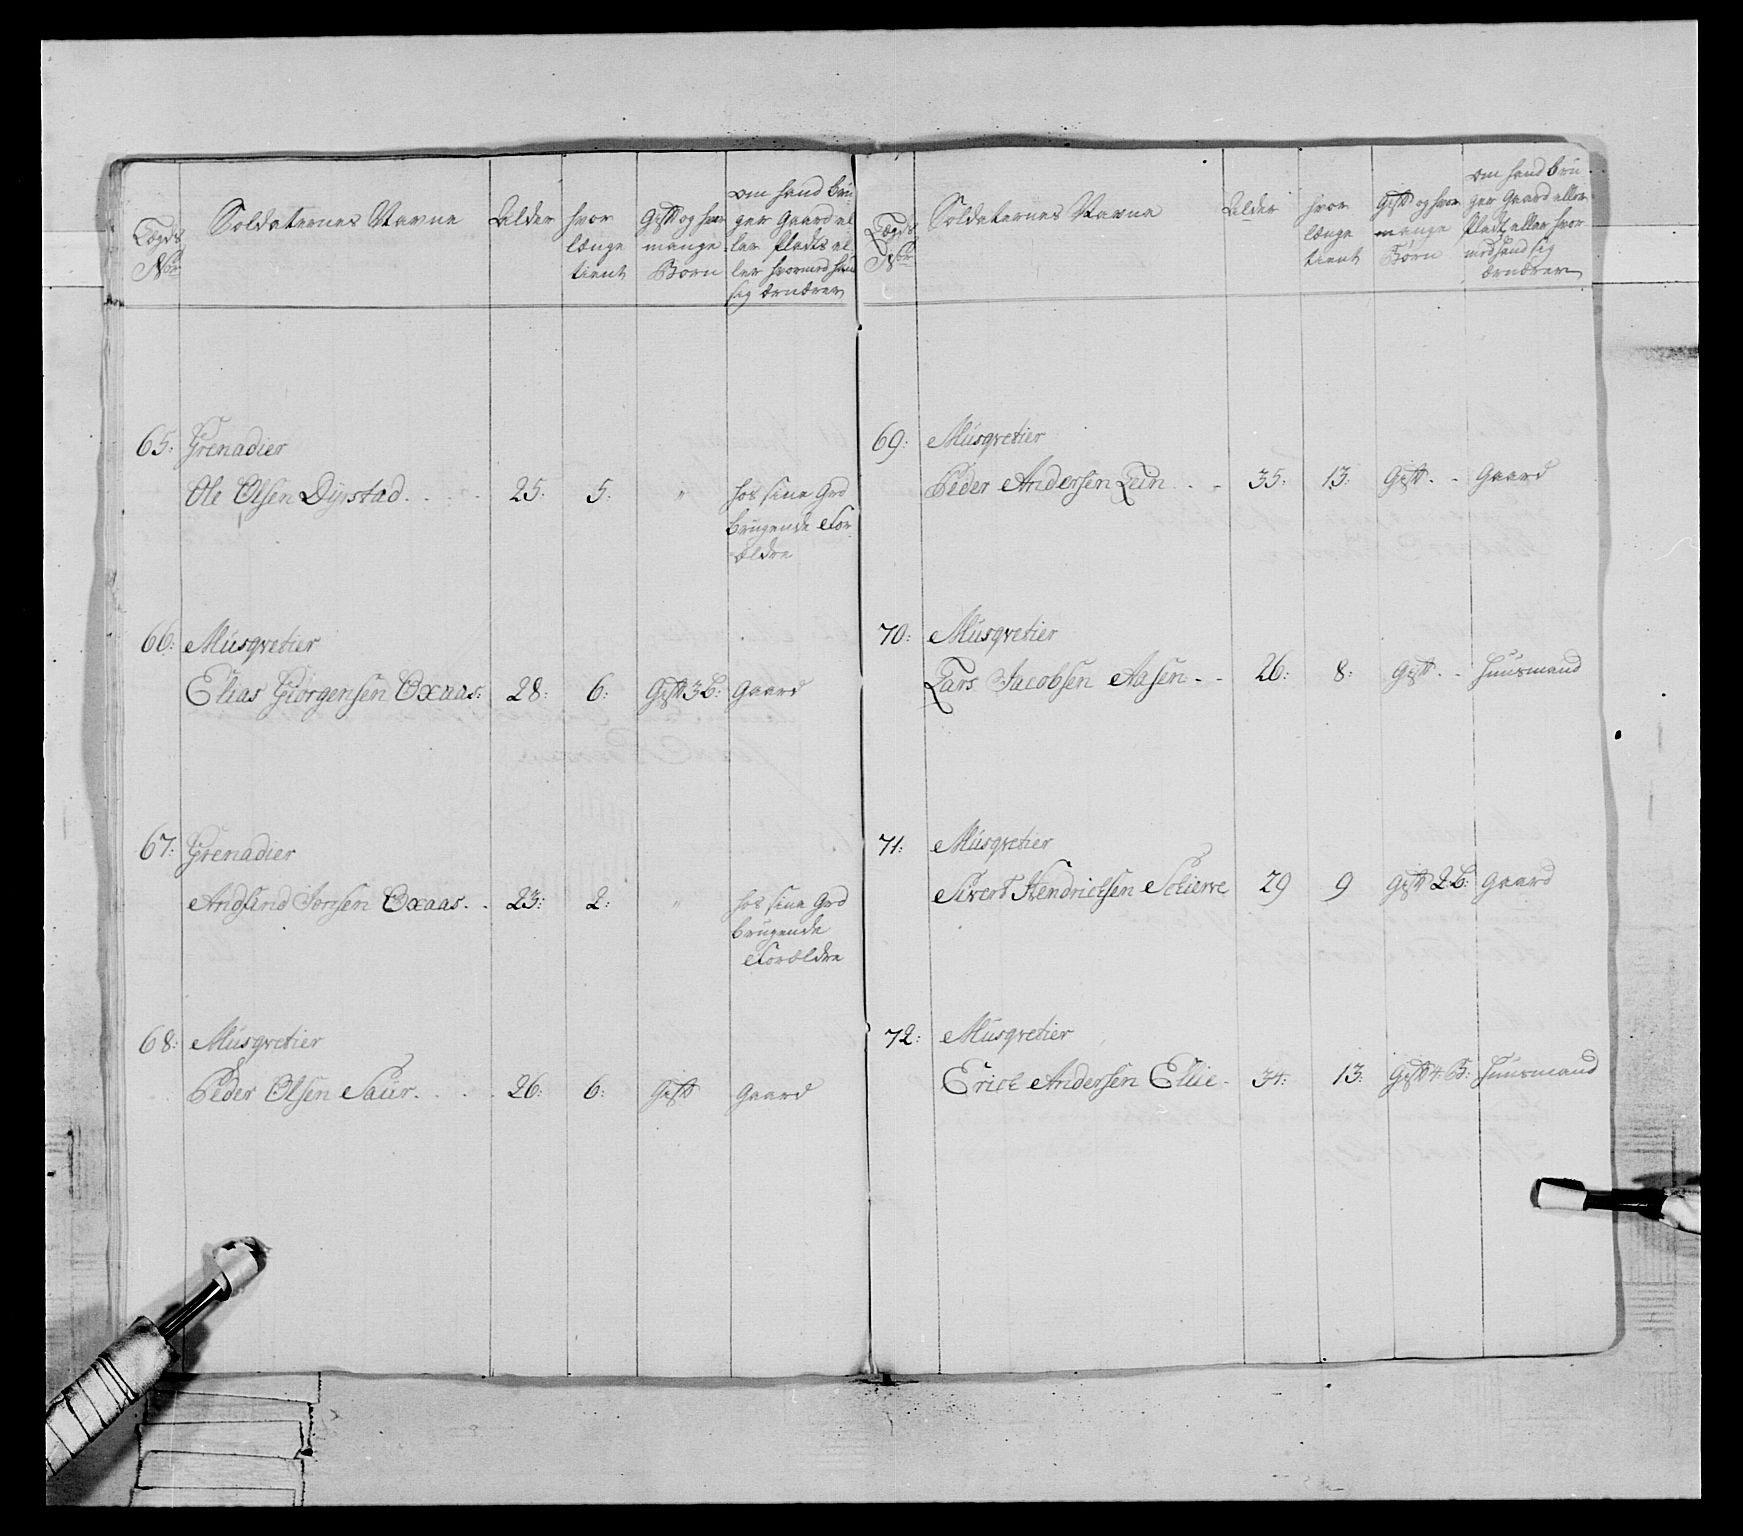 Lægds No. Soldaternes Navne Alder hvor længe tient Gift og hvor mange Børn om hand bruger Gaard eller Plads eller hvormed hand sig ernærer
65: Grenadier
Ole Olsen Dyrstad. . . . 25: 5: " hos sine Grd
brugende For-
ældre
66: Musqvetier
Elias Giörgensen Oxaas: 28: 6: Gift 3 b: Gaard
67: Grenadier
Jonsen Oxaas. . 23: 2: " hos sine Grd
brugende
Forældre
68: Musqvetier
Peder Olsen Saur. . . . 26: 6: Gift Gaard
Lægds No. Soldaternes Navne Alder hvor længe tient Gift og hvor mange Børn om hand bruger Gaard eller Pladz eller hvormed hand sig ærnærer
69: Musqvetier
Peder Andersen Lein . . 35: 13: Gift . . Gaard
70: Musqvetier
Lars Jacobsen Aasen - - 26: 8: Gift . . Huusmand
71: Musqvetier
Sivert Hendricksen Schierve 29 9 Gift 2 b: Gaard
72: Musqvetier
Erick Andersen Ellie - 34: 13: Gift 4 B: Huusmand